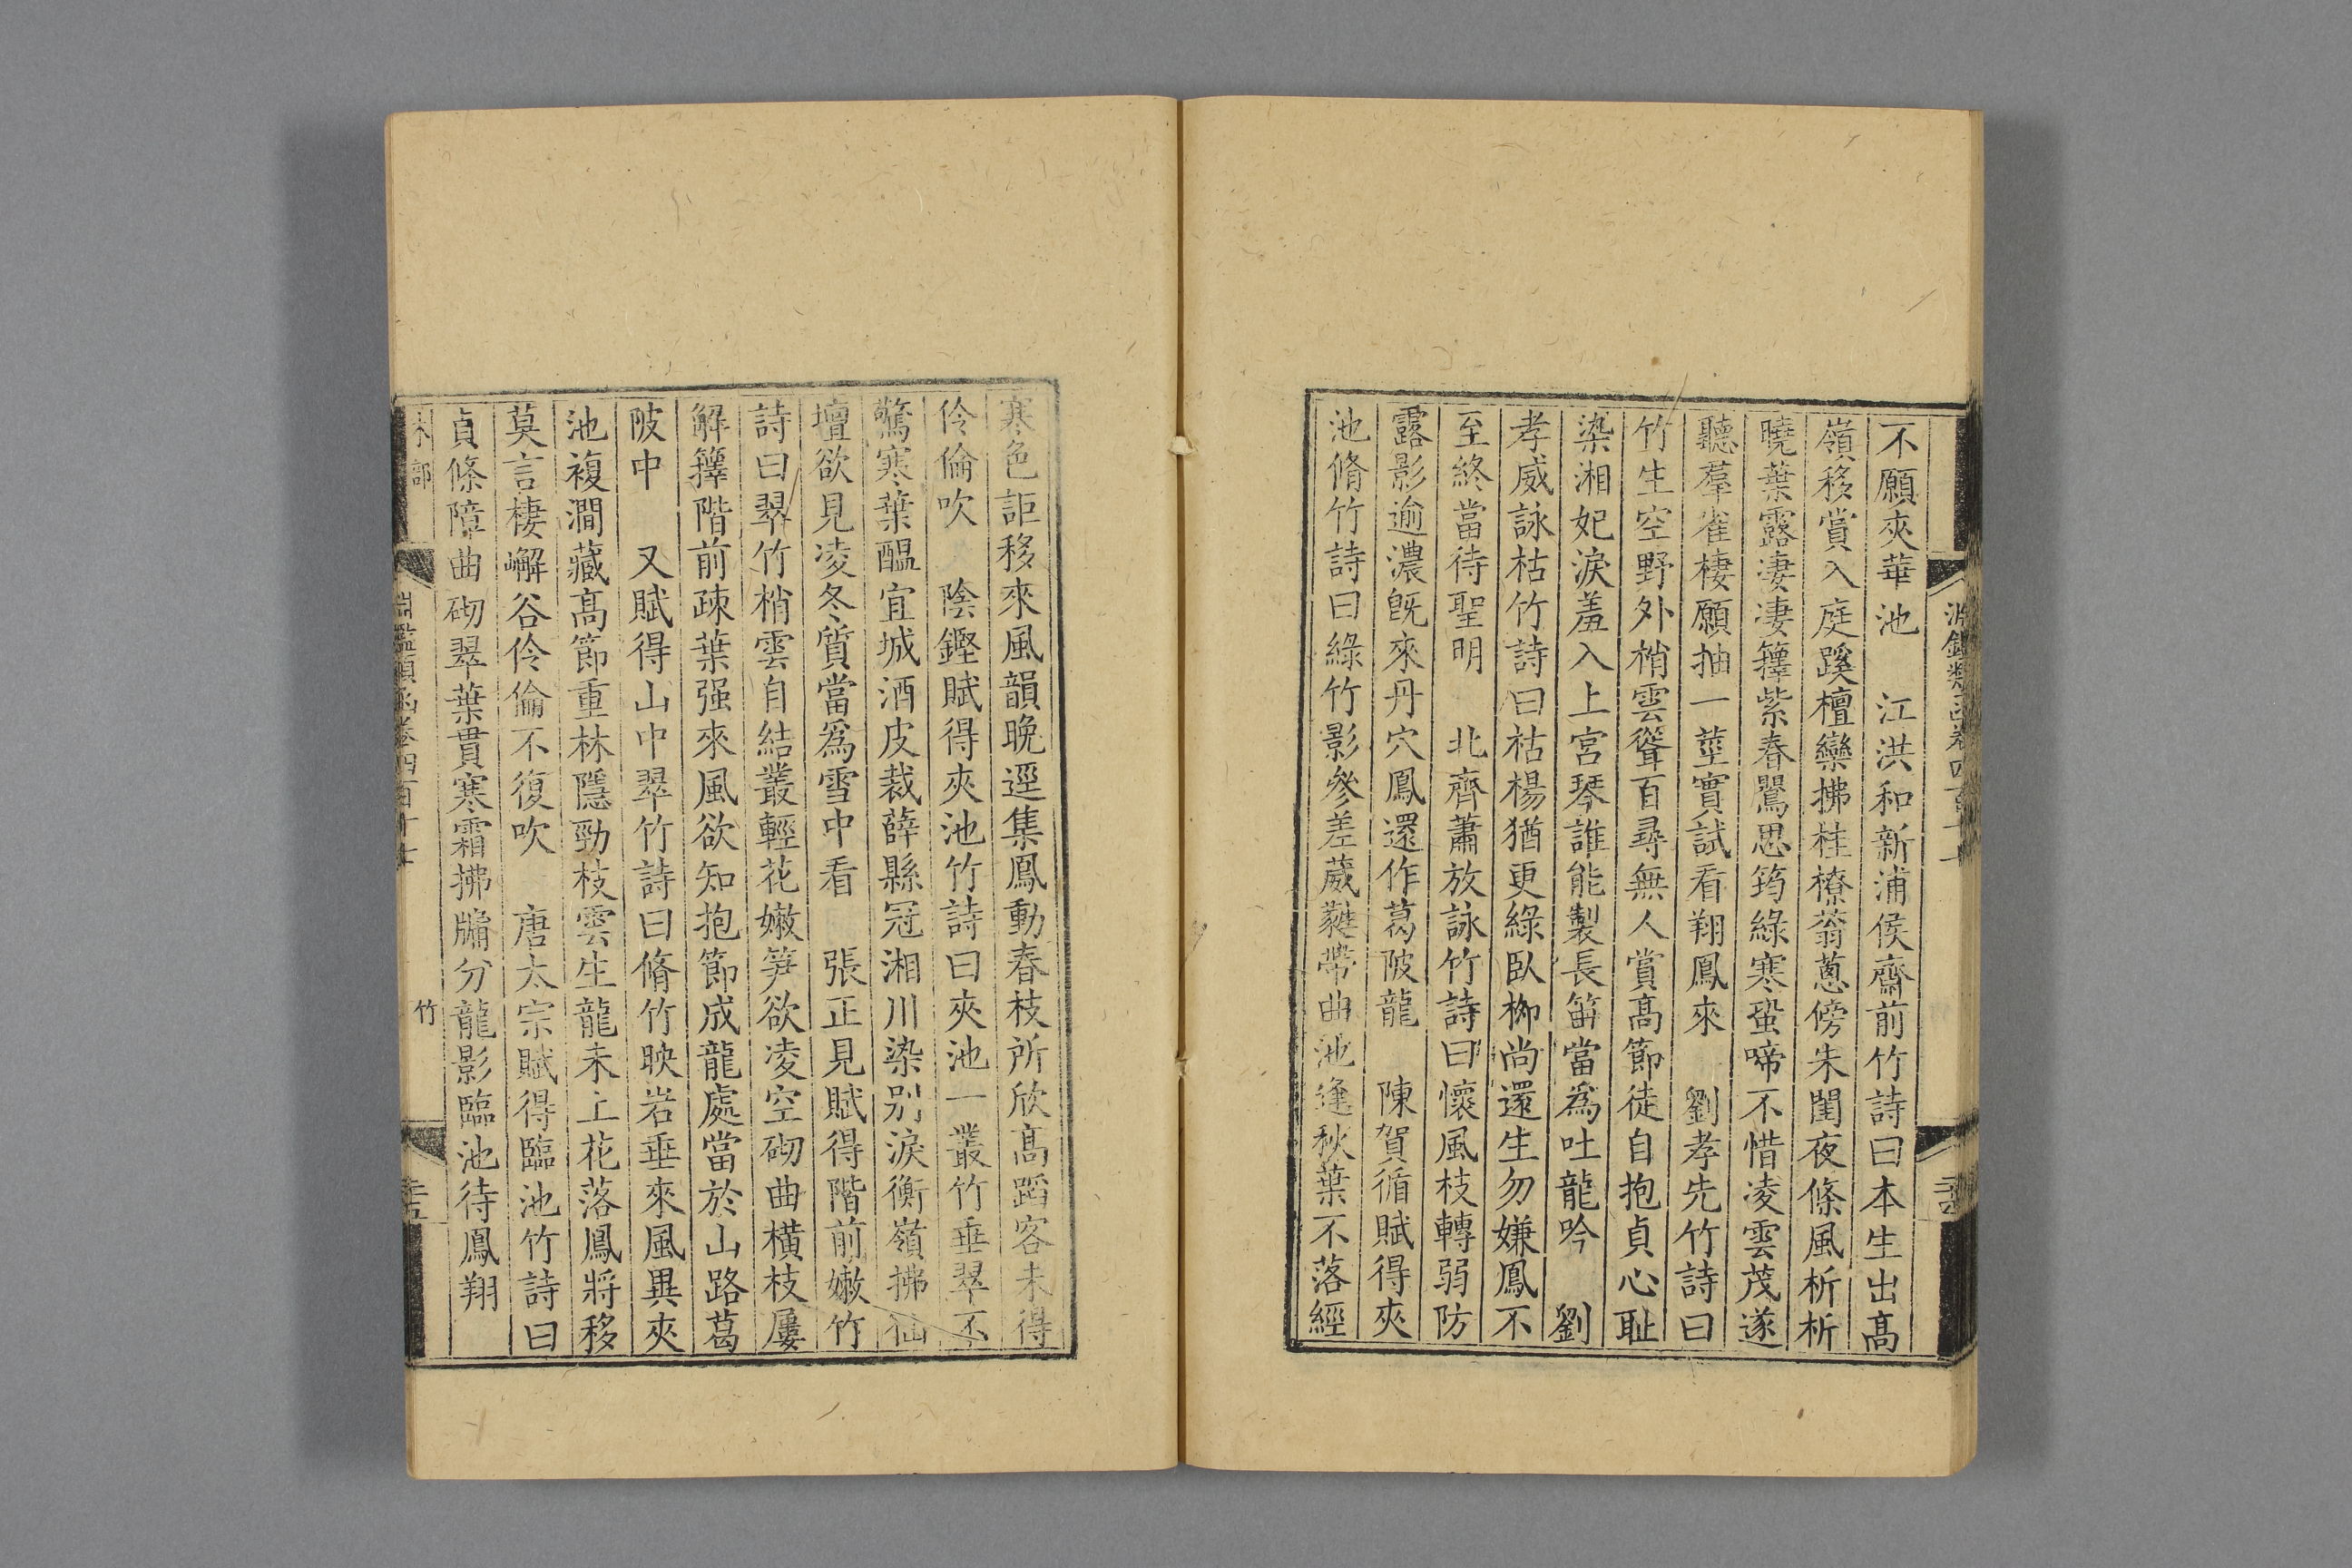 不願夾華池　江洪和新浦侯齋前竹詩曰本生出髙
嶺移賞入庭蹊檀欒拂桂橑蓊蔥傍朱閨夜條風析析
曉葉露淒淒籜紫春鸎思筠綠寒蛩啼不惜凌雲茂遂
聽羣雀棲願抽一莖實試看翔鳳來　劉孝先竹詩曰
竹生空野外梢雲聳百尋無人賞髙節徒自抱貞心耻
染湘妃淚羞入上宮琴誰能製長笛當爲吐龍吟　劉
孝威詠枯竹詩曰枯楊猶更綠臥栁尚還生勿嫌鳳不
至終當待聖明　北齊蕭放詠竹詩曰懷風枝轉弱防
露影逾濃旣來丹穴鳳還作葛陂龍　陳賀循賦得夾
池脩竹詩曰綠竹影參差葳蕤帶曲池逢秋葉不落經
寒色詎移來風韻晚逕集鳳動春枝所欣髙蹈客未得
伶倫吹　陰鏗賦得夾池竹詩曰夾池一叢竹垂翠不
驚寒葉醖宜城酒皮裁薛縣冠湘川染别淚衡嶺拂仙
壇欲見凌冬質當爲雪中看　張正見賦得階前嫩竹
詩曰翠竹梢雲自結叢輕花嫩笋欲凌空砌曲橫枝屢
解籜階前疎葉强來風欲知抱節成龍處當於山路葛
陂中　又賦得山中翠竹詩曰脩竹映岩垂來風異夾
池複澗藏髙節重林隱勁枝雲生龍未上花落鳳將移
莫言棲嶰谷伶倫不復吹　唐太宗賦得臨池竹詩曰
貞條障曲砌翠葉貫寒霜拂牖分龍影臨池待鳳翔
淵鑑類函卷四百十七
竹